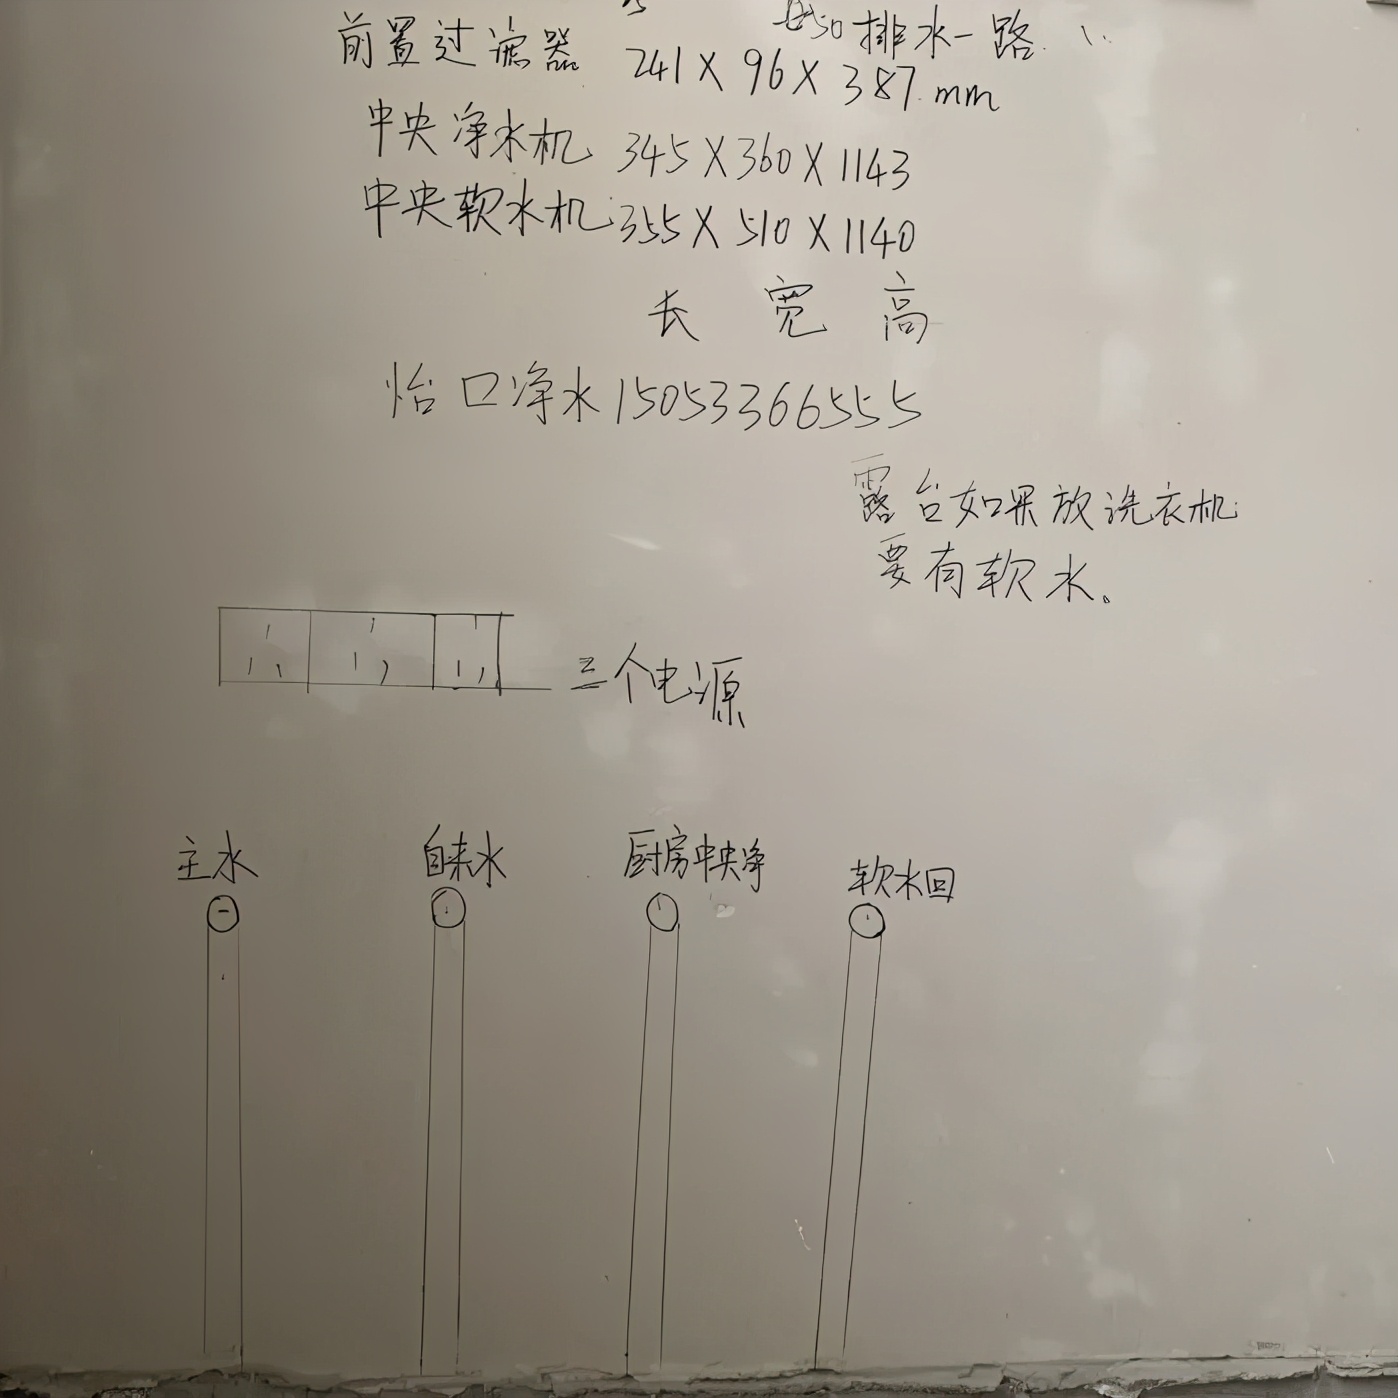 50排水一路
前置过滤器 241X96X387mm
中央净水机 345X360X1143
中央软水机 355X510X1140
长 宽 高
怡口净水15053366555
露台如果放洗衣机
要有软水。
三个电源
主水 自来水 厨房中央净 软水回